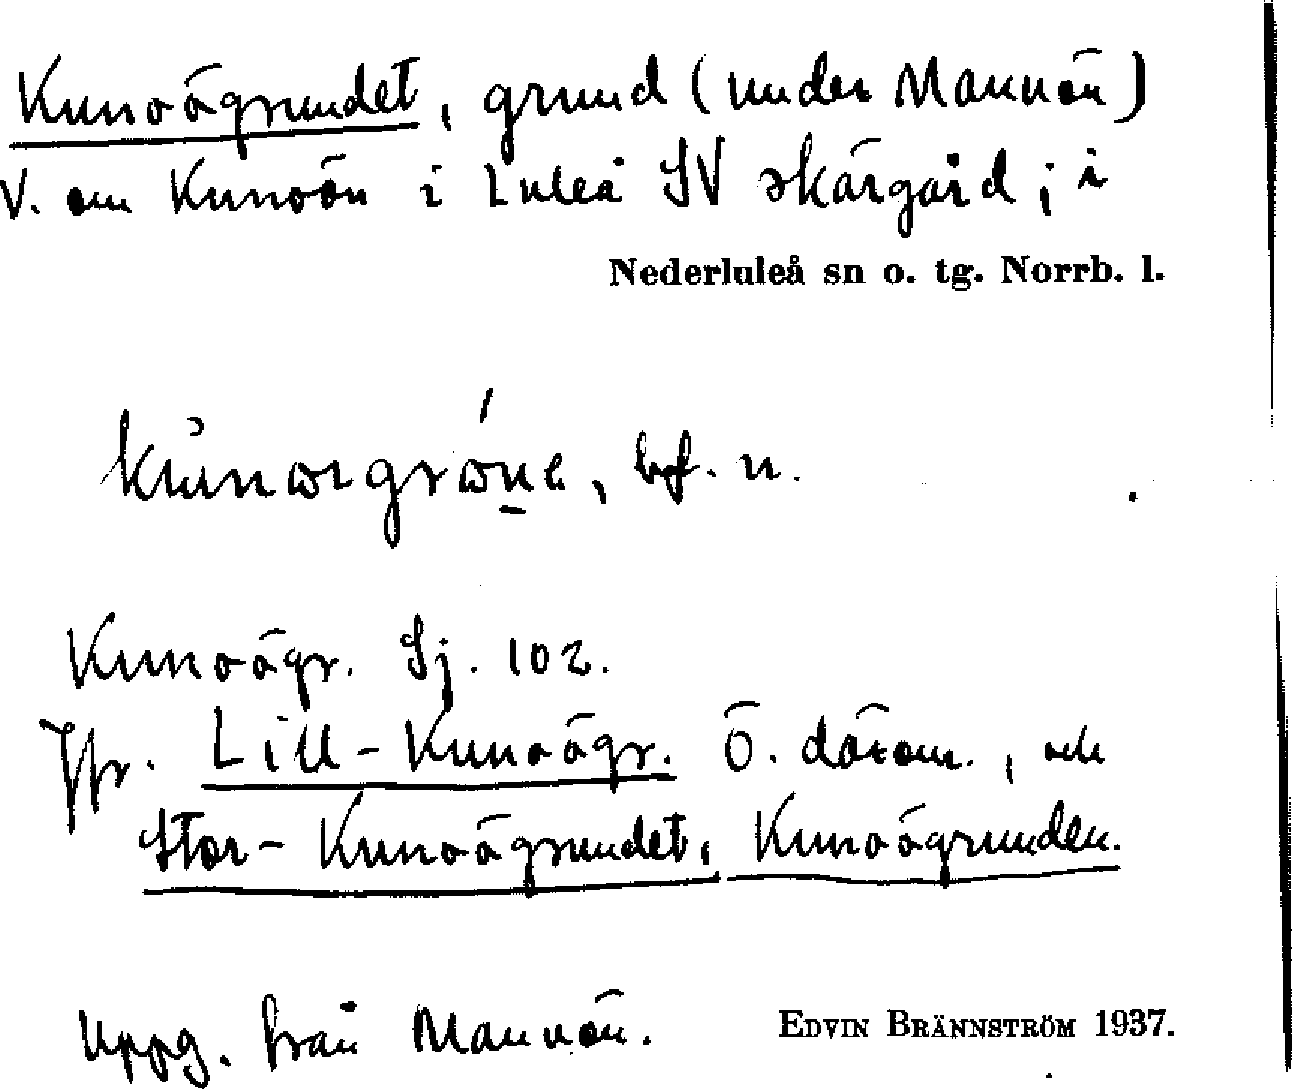 Kunoögrundet, grund (under Mannön)
V. om Kunoön i Luleå SV skärgård; i
Nederluleå sn o. tg. Norrb. l.
bf. n.
Kunoögr. Sj. 102.
Jfr. Lill-Kunoögr. Ö. därom., och
Stor-Kunoögrundet, Kunoögrunden.
Uppg. från Mannön.
EDVIN BRÄNNSTRÖM 1937.